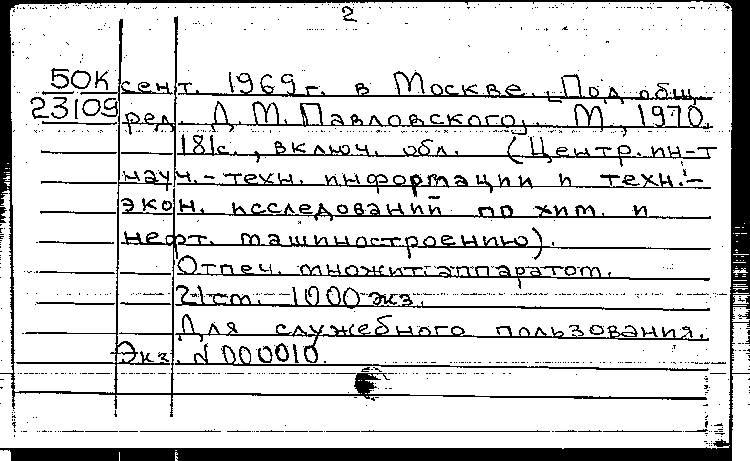 2
50К сент. 1969г. в Москве. Под общ.
23109 ред. Д.М. Павловского. М., 1970.
181с., включ. обл. (Центр. ин-т
науч.-техн. информации и техн.-
экон. исследований по хим. и
нефт. машиностроению).
Отпеч. множит.аппаратом.
21см. 1000 экз.
Для служебного пользования.
Экз. N 000010.